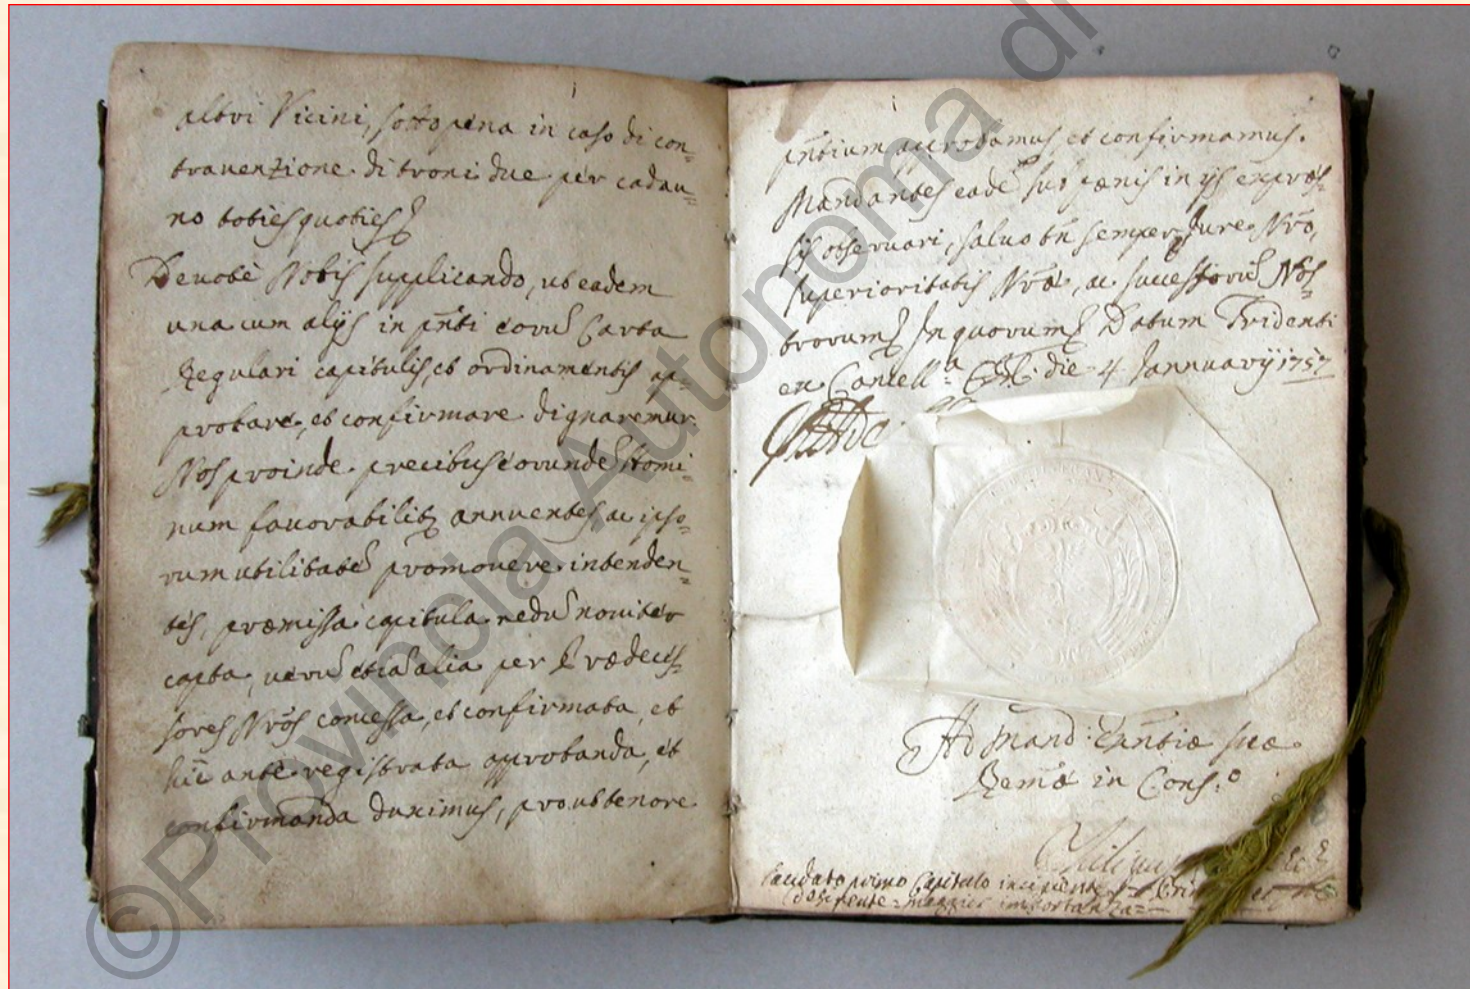 altri Vicini, sotto pena in caso di con=
travenzione di troni due per cadau=
no toties quoties
Devotè Nobis supplicando, ut eadem
una cum alÿs in pñti eorũ Carta
Regulari capitulis, et ordinamentis ap=
probare, et confirmare dignaremur.
Nos proinde precibus eorundẽ Homi=
num favorabilitꝫ annuentes, ac ipso=
rum utilitatẽ promovere intenden=
tes, præmissa capitula nedũ noviter
capta, verũ etiã alia per Prædeces=
sores Nr̃os concessa, et confirmata, et
hic antè registrata approbanda, et
confirmanda duximus, prout tenore
pñtium approbamus et confirmamus.
Mandantes eadẽ sub pænis in ÿs expres=
sis observari, salvo tñ semper Jure Nrõ,
Superioritatis Nræ̃, ac successorũ Nos=
trorum Jn quorum Datum Tridenti
ex Cancell.ª die 4 Jannuarÿ 1757
Ad Mand: Eñntiæ suæ
Remæ̃ in Cons.º
laudato primo Capitulo incipiente
desinente = maggior importanza =
©Provincia Autonoma di